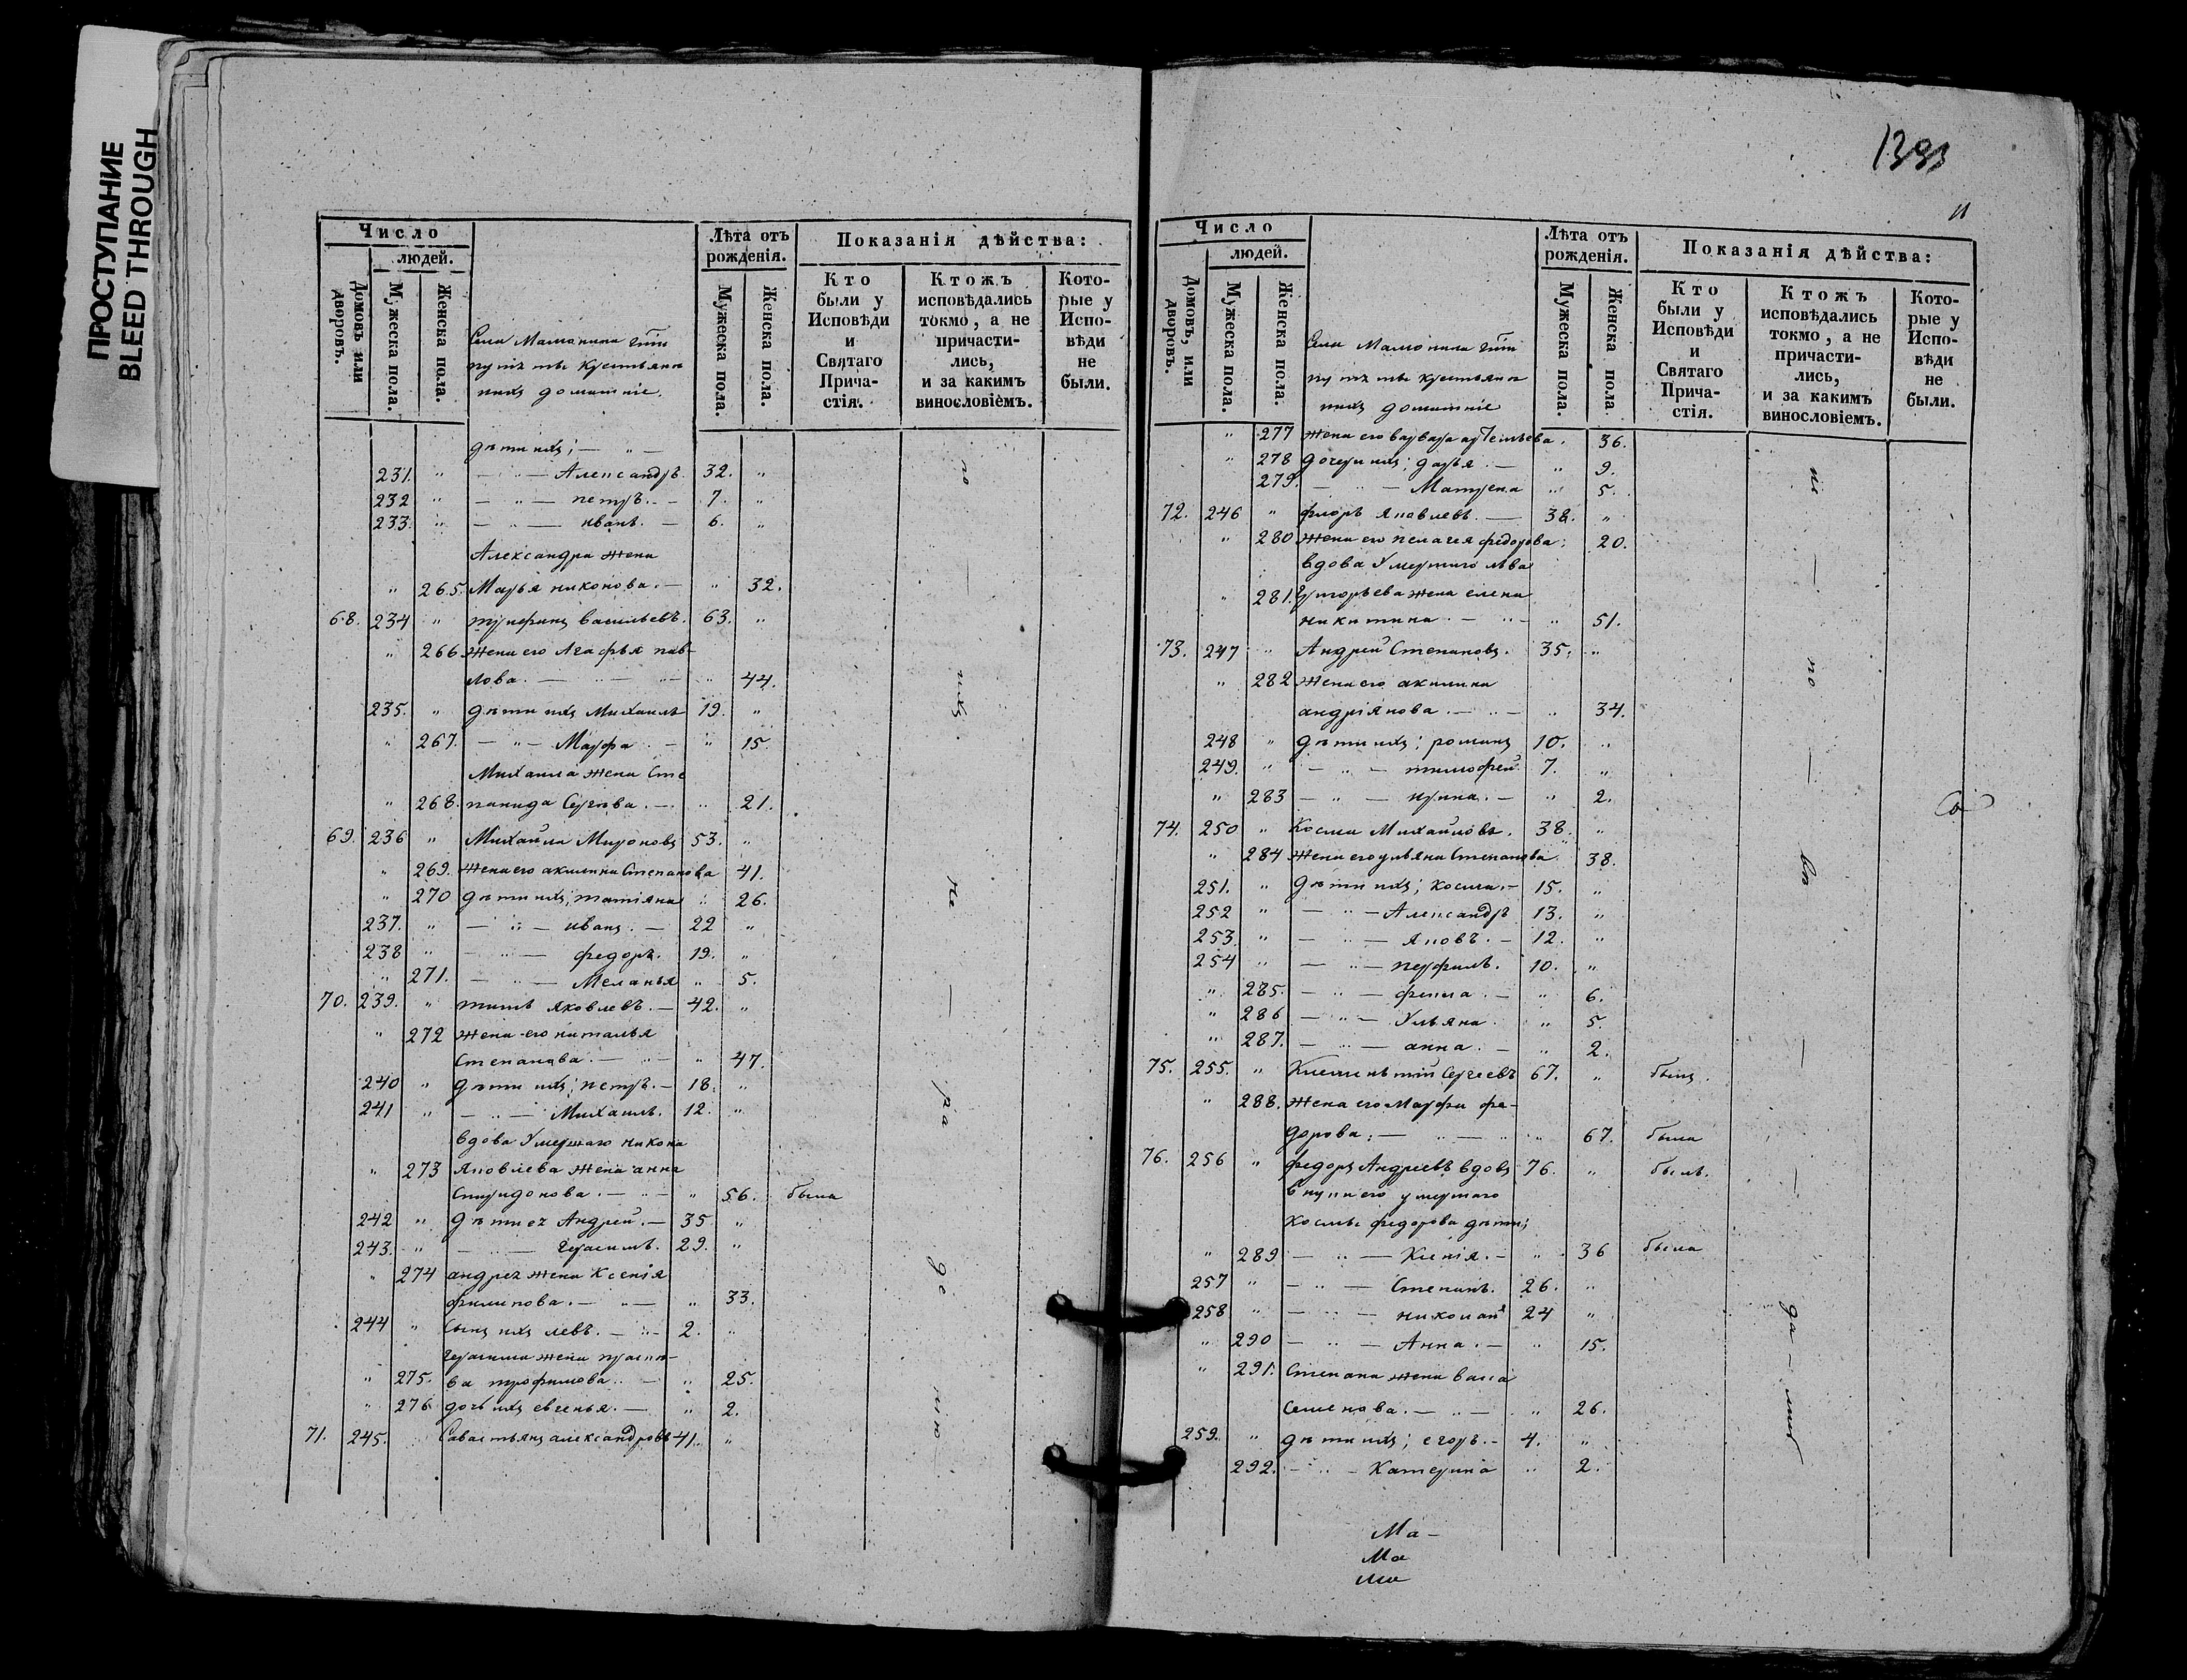 ПРОСТУПАНИЕ
BLEED THROUGH
Число
людей.
Домовъ или дворовъ.
Мужеска пола.
Женска пола.
Лѣта отъ рожденія.
Мужеска пола.
Женска пола.
Показанія дѣйства:
Кто были у Исповѣди и Святаго Прича-стія.
Ктожъ исповѣдались токмо, а не причасти-лись, и за какимъ винословіемъ.
Кото-рые у Испо-вѣди не были.
Села Мамонина
крестьяне
ихъ домашніе.
дѣти ихъ; — „ —
231. „ — „ — Александръ. 32. „
232 „ — „ — петръ. — 7. „
233. „ — „ — иванъ. — 6. „
Александра жена
„ 265. Марья никонова. — „ 32.
68. 234 „ трифонъ васильевъ. 63. „
„ 266 жена его Агафья пав-
лова. — „ — „ 44.
235. „ дѣти ихъ Михаилъ 19. „
„ 267. — „ — Марфа — „ 15.
Михаила жена Сте
„ 268. панида Сергѣева. — „ 21.
69. 236 „ Михайла Мироновъ 53. „
„ 269. жена его акилина Степанова 41.
„ 270 дѣти ихъ; татіяна „ 26.
237. „ — „ — иванъ. — 22 „
238 „ — „ — федоръ. 19. „
„ 271. — „ — Меланья „ 5.
70. 239. „ титъ яковлевъ. — 42. „
„ 272 жена его наталья
Степанова. — „ — „ 47.
240 „ дѣти ихъ; петръ. — 18. „
241 „ — „ — Михаилъ. 12. „
вдова Умершаго никона
„ 273 яковлева жена анна
Спиридонова. — „ — „ 56. была
242 „ дѣти ея Андрей. — 35. „
243. „ — „ — герасимъ. 29. „
„ 274 андрея жена Ксенія
филипова. — „ — „ 33.
244 „ Сынъ ихъ левъ. — „ — 2. „
герасима жена праско-
„ 275. ва трофимова. — „ 25.
„ 276 дочь ихъ евгенья. — „ 2.
71. 245. Савастьянъ александровъ 41. „
1393
11
Число
людей.
Домовъ, или дворовъ.
Мужеска пола.
Женска пола.
Лѣта отъ рожденія.
Мужеска пола.
Женска пола
Показанія дѣйства:
Кто были у Исповѣди и Святаго Прича-стія.
Ктожъ исповѣдались токмо, а не причасти-лись, и за какимъ винословіемъ.
Кото-рые у Испо-вѣди не были.
Села Мамонина
крестьяне
ихъ домашніе
„ 277 жена его варвара артемьева. 36.
„ 278 дочери ихъ; дарья. — „ 9.
279. — „ — Матрена „ 5.
72. 246 „ флоръ яковлевъ. — 38. „
„ 280 жена его пелагея федорова. 20.
вдова Умершаго льва
„ 281. григорьева жена елена
никитина. — „ — „ 51.
73. 247 „ Андрей Степановъ. 35. „
„ 282 жена его акилина
андріянова. — „ — „ 34.
248 „ дѣти ихъ; романъ 10. „
249. „ — „ — тимофей. 7. „
„ 283 — „ — ирина. — „ 2.
74. 250 „ Косма Михайловъ. 38. „
„ 284 жена его ульяна Степанова. 38.
251. „ дѣти ихъ; косма. — 15. „
252 „ — „ — Александръ 13. „
253. „ — „ — яковъ. — 12. „
254 „ — „ — перфилъ. 10. „
„ 285. — „ — фекла. — „ 6.
„ 286 — „ — Ульяна. „ 5.
„ 287. — „ — анна. — „ 2.
75. 255. „ Климентій Сергеевъ 67. „ былъ.
„ 288. жена его Марфа фе-
дорова; — „ — „ 67. была
76. 256 „ федоръ Андреевъ вдовъ 76. „ былъ.
внуки его умершаго
космы федорова дѣти;
„ 289 — „ — Ксенія. — „ 36 была
257 „ — „ — Степанъ. 26. „
258 „ — „ — николай 24 „
„ 290 — „ — Анна. — „ 15.
„ 291. Степана жена васса
Семенова. — „ — „ 26.
259. „ дѣти ихъ; егоръ. — 4. „
292. — „ — Катерина „ 2.
Ма —
Ма
Ма